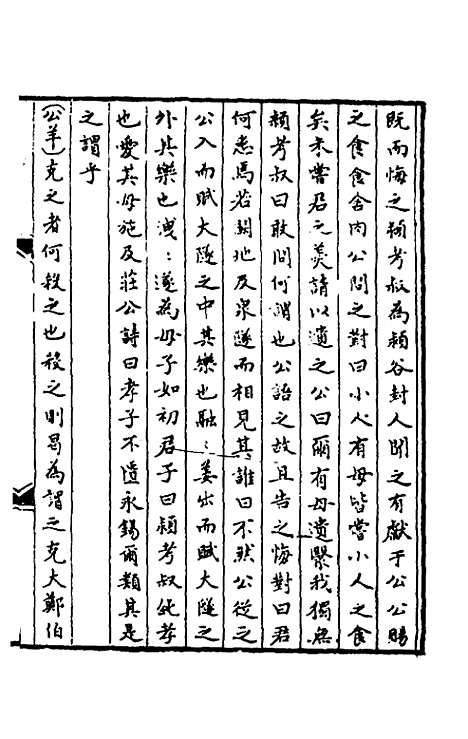 既而悔之頴考叔為頴谷封人聞之有獻于公公賜
之食食舍肉公問之對曰小人有母皆嘗小人之食
矣未嘗君之羹請以遺之公曰爾有母遺繄我獨無
頴考叔曰敢問何謂也公語之故且告之悔對曰君
何患焉若闕地及泉隧而相見其誰曰不然公從之
公入而賦大隧之中其樂也融〻姜出而賦大隧之
外其樂也洩〻遂為母子如初君子曰頴考叔純孝
也愛其母施及莊公詩曰孝子不匱永錫爾類其是
之謂乎
(公羊)克之者何殺之也殺之則曷為謂之克大鄭伯